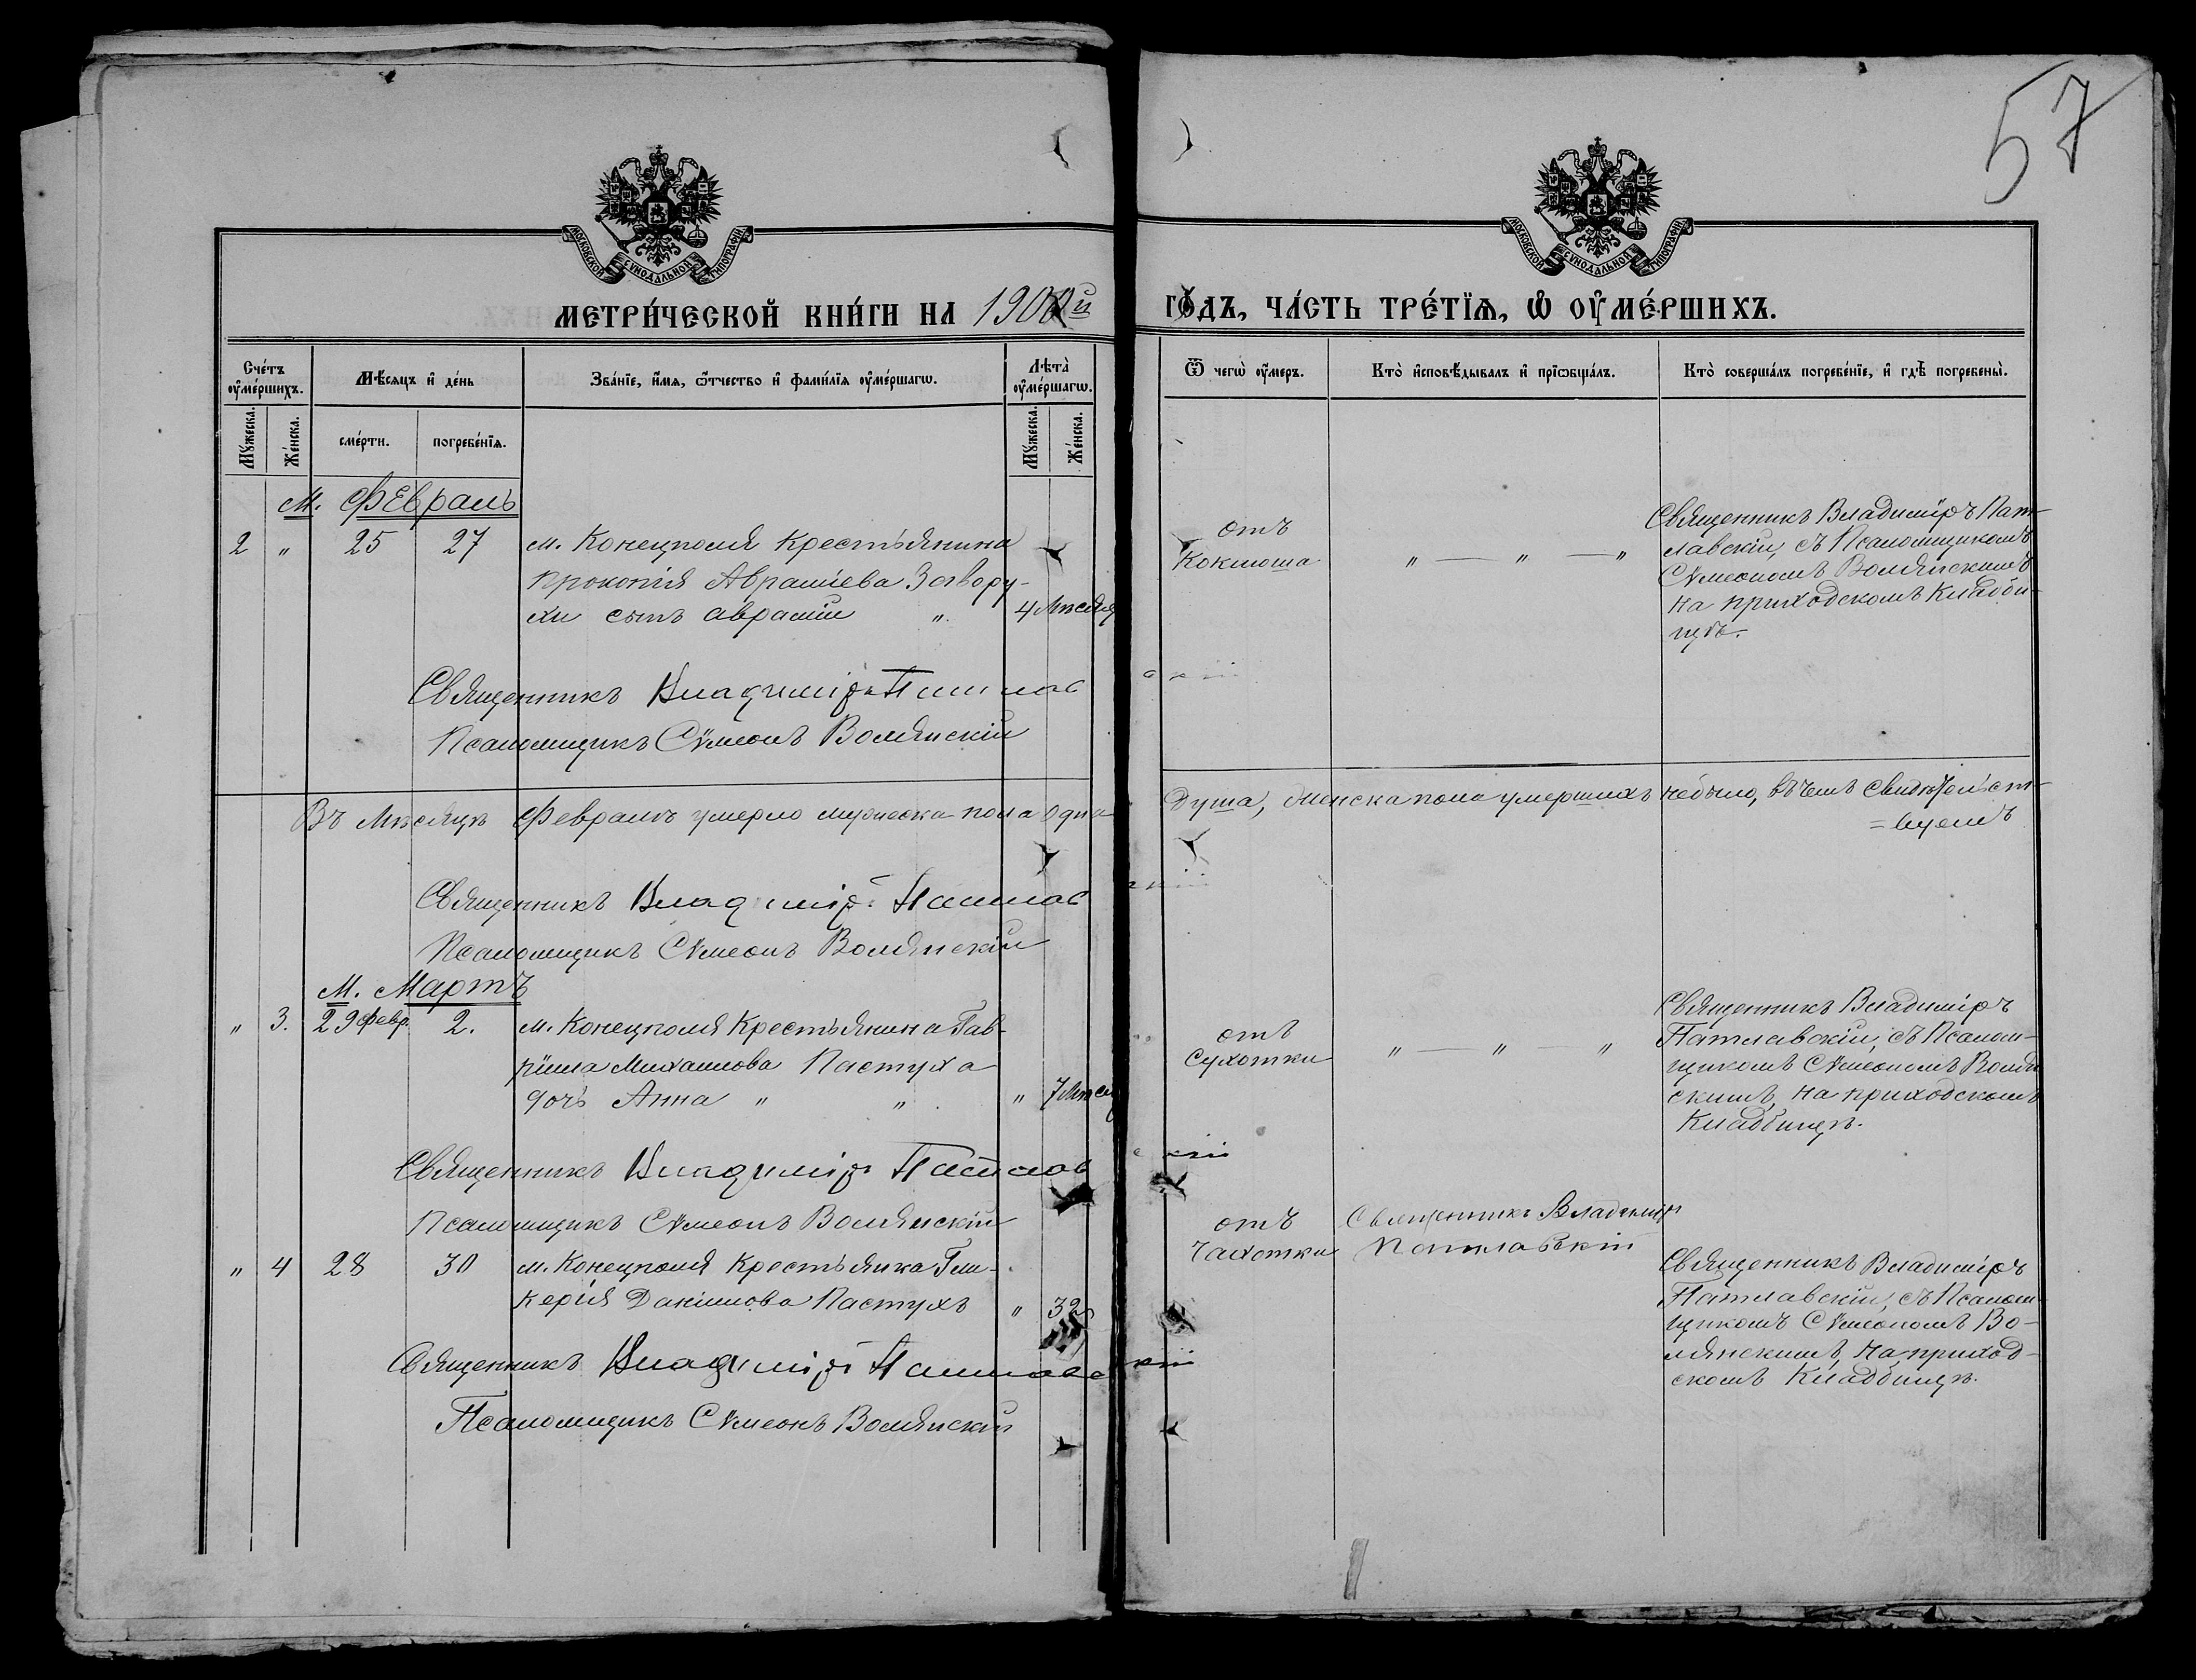 57
МОСКОВСКОЙ СѴНОДАЛЬНОЙ ТИПОГРАФІИ
МОСКОВСКОЙ СѴНОДАЛЬНОЙ ТИПОГРАФІИ
МЕТРИ́ЧЕСКОЙ КНИ́ГИ НА
ГО́ДЪ, ЧА́СТЬ ТРЕ́ТЇѦ, Ѽ ОУ҆МЕ́РШИХЪ.
Сче́тъ оу҆ме́ршихъ.
Мѣ́сѧцъ и҆ де́нь
Зва́нїе, и҆́мѧ, ѻ҆́тчество и҆ фами́лїѧ оу҆ме́ршагѡ.
Лѣ́та оу҆ме́ршагѡ.
Ѿ чегѡ̀ оу҆́меръ.
Кто̀ и҆сповѣ́дывалъ и҆ прїѡбща́лъ.
Кто̀ соверша́лъ погребе́нїе, и҆ гдѣ̀ погребены̀.
Мꙋ́жеска. Же́нска. сме́рти. погребе́нїѧ. Мꙋ́жеска. Же́нска.
М. Февраль
2 " 25 27 м. Конецполя Крестьянина
Прокопія Авраміева Заверу-
хи сынъ Аврамій " 4 Мѣсяц
отъ
Коклюша " — " — "
Священникъ Владиміръ Пат-
лавскій, съ Псаломщикомъ
Сѵмеономъ Волянскимъ
на приходскомъ Кладби-
щѣ.
Священникъ Владиміръ Патлавскій
Псаломщикъ Сѵмеонъ Волянскій
Въ Мѣсяцѣ Февралѣ умерло мужеска пола одна Душа, женска пола умершихъ небыло, въ чемъ свидѣтельст-
=вуемъ
Священникъ Владиміръ Патлавскій
Псаломщикъ Сѵмеонъ Волянскій
М. Мартъ
" 3. 29 Февр. 2. м. Конецполя Крестьянина Гав-
ріила Михаилова Пастуха
дочь Анна " " " 7 Мѣсяц
отъ
Сухотки " — " — "
Священникъ Владиміръ
Патлавскій, съ Псалом-
щикомъ Сѵмеономъ Волян
скимъ, на приходскомъ
Кладбищѣ.
Священникъ Владиміръ Патлавскій
Псаломщикъ Сѵмеонъ Волянскій
" 4 28 30 м. Конецполя Крестьянка Гли-
керія Данiилова Пастухъ " 32
отъ
Чахотки
Священникъ Владиміръ
Патлавскій
Священникъ Владиміръ
Патлавскій, съ Псалом-
щикомъ Сѵмеономъ Во-
лянскимъ, на приход-
скомъ Кладбищѣ.
Священникъ Владиміръ Патлавскій
Псаломщикъ Сѵмеонъ Волянскій